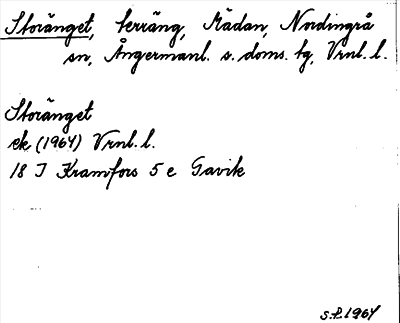 Storänget, terräng, Mädan, Nordingrå
sn, Ångermanl. s. doms. tg, Vrnl. l.
Storänget
ek (1964) Vrnl. l.
18 I Kramfors 5 e Gavik
S.P. 1964